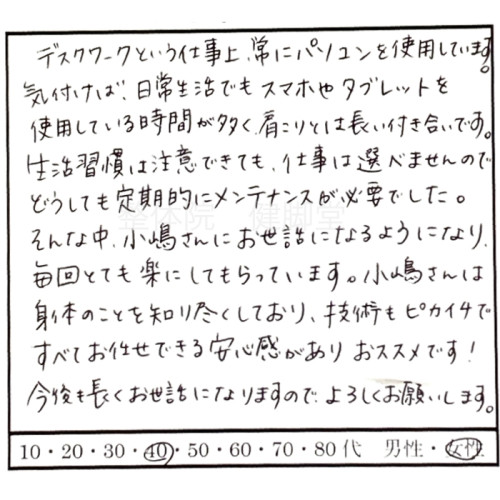 デスクワークという仕事上、常にパソコンを使用しています。
気付けば、日常生活でもスマホやタブレットを
使用している時間が多く、肩こりとは長い付き合いです。
生活習慣は注意できても、仕事は選べませんので
どうしても定期的にメンテナンスが必要でした。
そんな中、小嶋さんにお世話になるようになり、
毎回とても楽にしてもらっています。小嶋さんは
身体のことを知り尽くしており、技術もピカイチで
すべてお任せできる安心感がありおススメです!
今後も長くお世話になりますので、よろしくお願いします。
整体院 健脚堂
10・20・30・40・50・60・70・80代 男性・女性